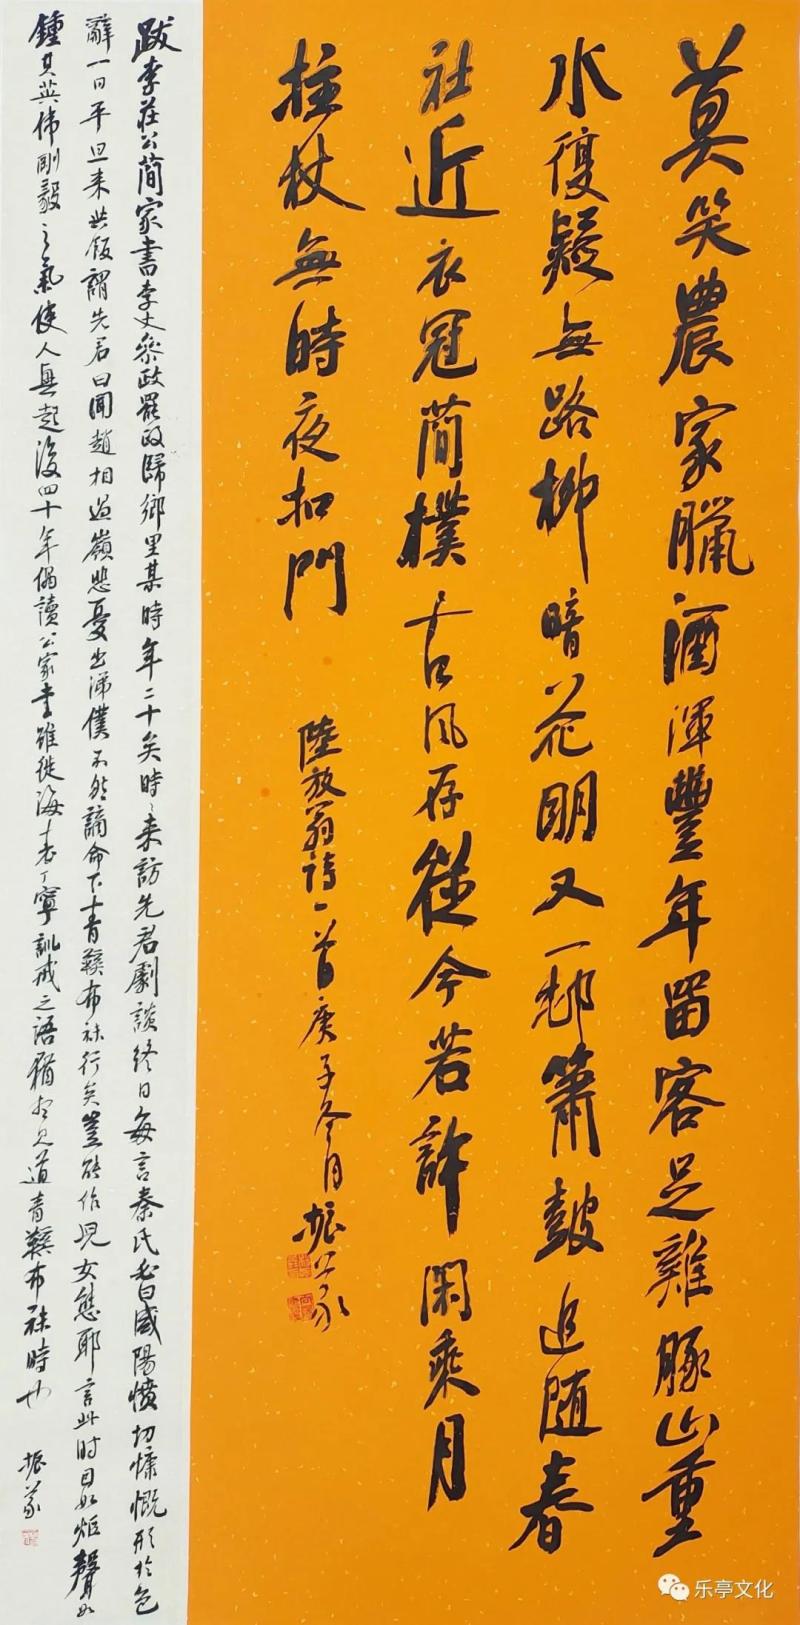 莫笑農家臘酒渾豐年留客足雞豚山重
水復疑無路柳暗花明又一邨簫皷追随春
社近衣冠簡樸古風存從今若許閑乘月
拄杖無時夜扣門
陸放翁詩一首庚子冬月振
跋李莊公簡家書李丈參政罷政歸鄉里某時年二十矣時〻來訪先君劇談終日每言秦氏必曰咸陽憤切慷慨形於色
辭一日平旦来共飯謂先君曰聞趙相過嶺悲憂出涕僕不然謫命下青鞵布袜行矣豈能作兒女態耶言此時目如炬聲如
鍾其英偉剛毅之氣使人興起後四十年偶讀公家書雖徙海丁寧訓戒之語猶見道青鞵布袜時也
振
乐亭文化